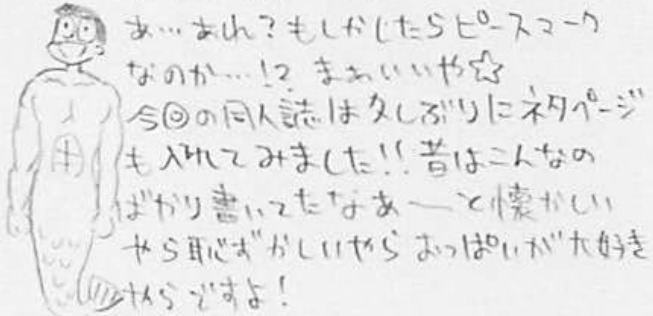 あ…あれ?もしかしたらピースマーク
なのか…!? まあいいや☆
今回の同人誌は久しぶりにネタページ
も入れてみました!!昔はこんなの
ばかり書いてたなあ〜と懐かしい
やら恥ずかしいやらおっぱいが大好き
やらですよ!